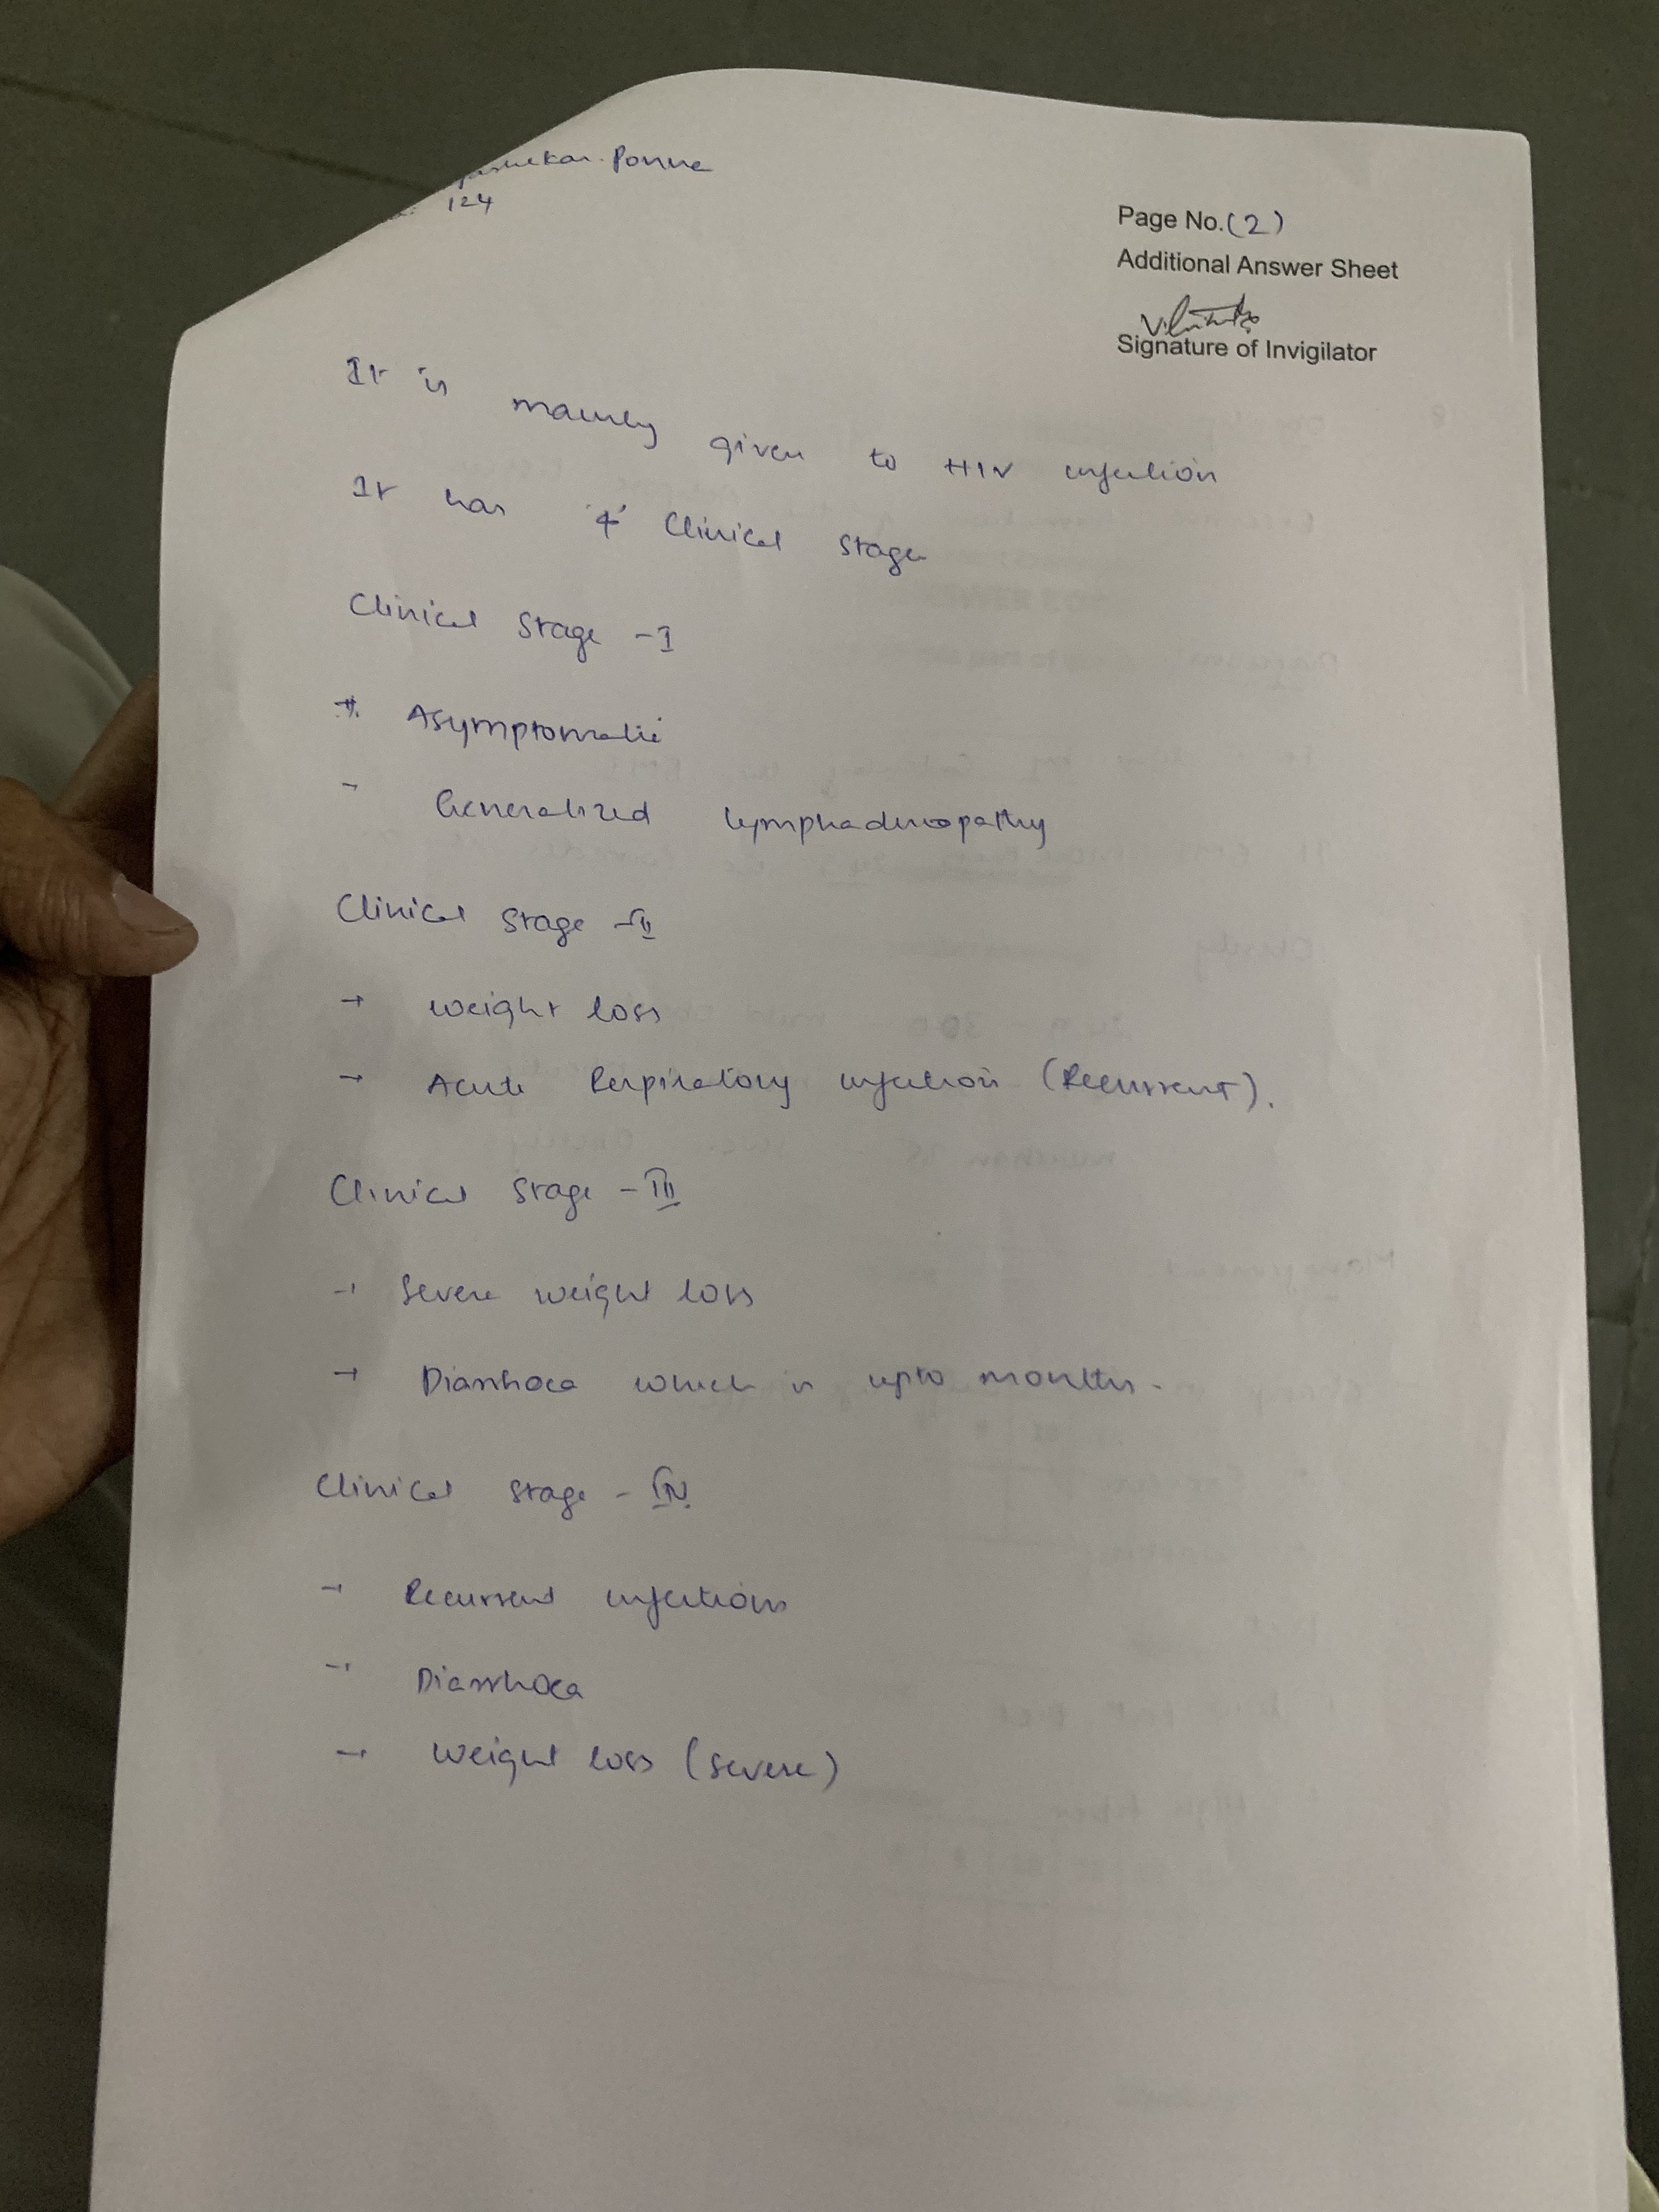 Ponne
124
Page No.(2)
Additional Answer Sheet
Signature of Invigilator
It is mainly given to HIV infection
It has 4 Clinical stage
Clinical Stage - I
Asymptomatic
Generalized lymphadenopathy
Clinical Stage - II
→ weight loss
→ Acute Respiratory infection (Recurrent).
Clinical Stage - III
→ Severe weight loss
→ Diarrhoea which is upto months.
Clinical Stage - IV
→ Recurrent infections
→ Diarrhoea
→ Weight loss (severe)